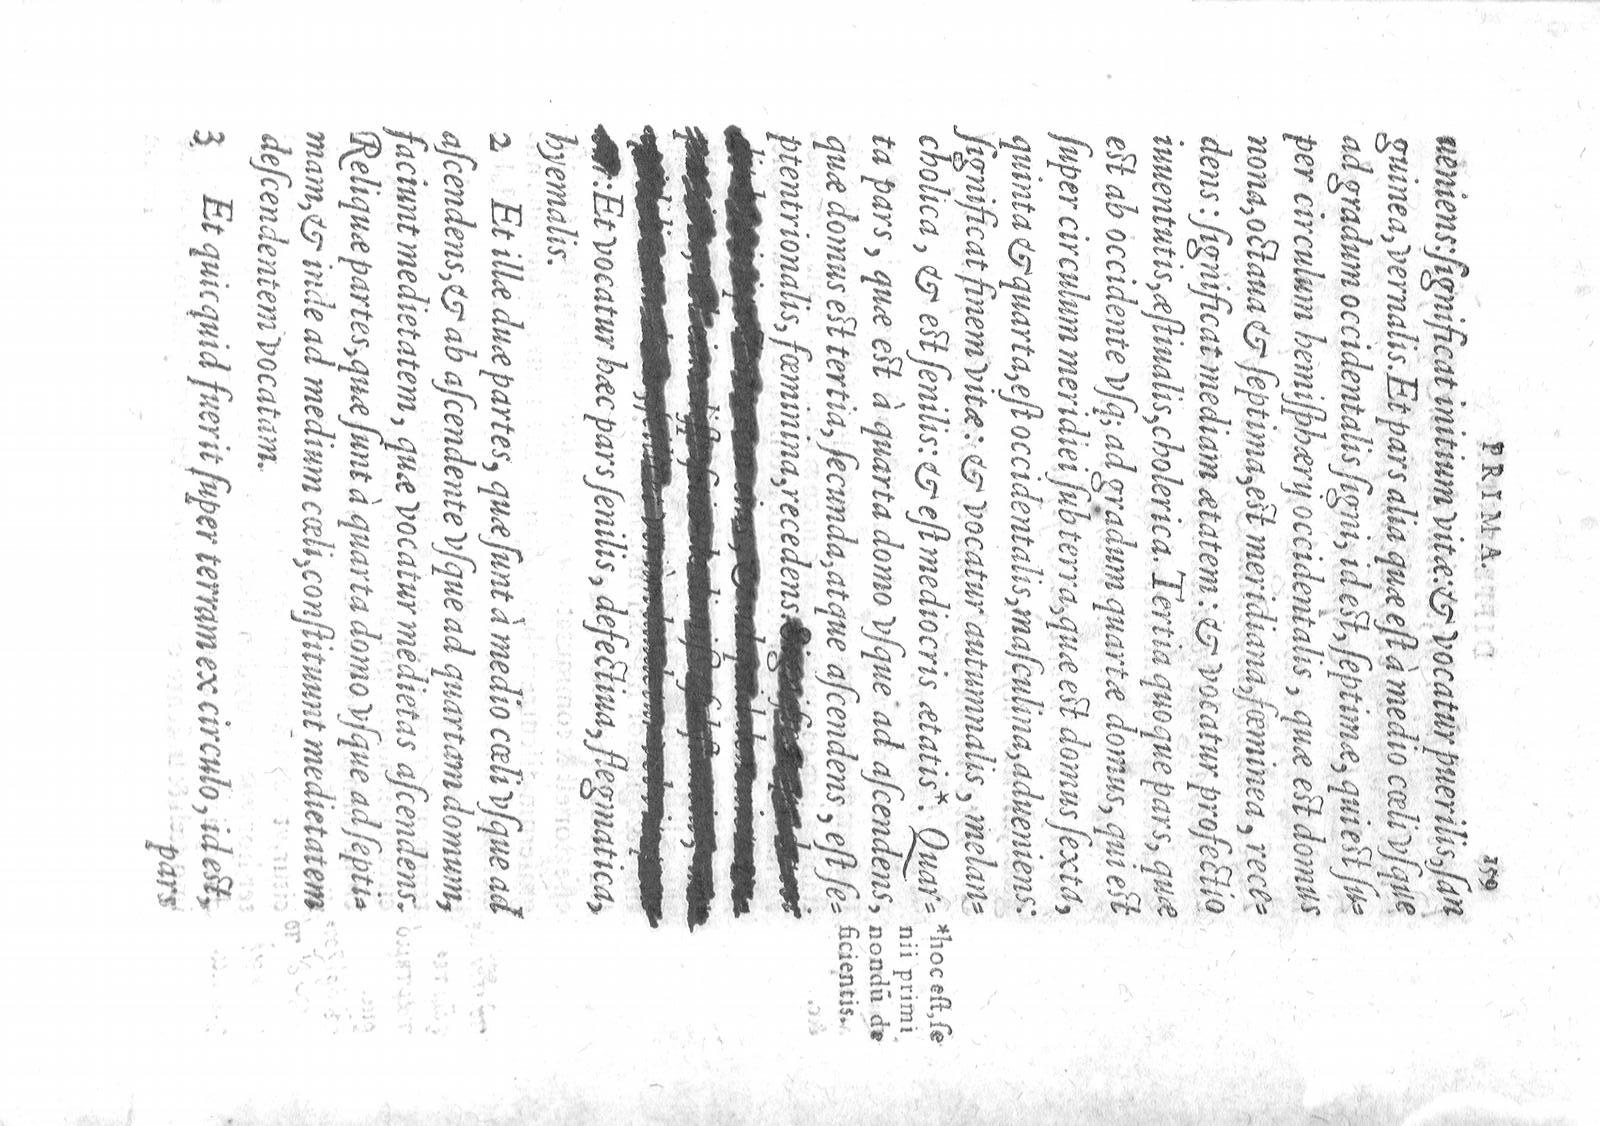 PRIMA. 159
ueniens: ſignificat initium vitæ: & vocatur puerilis, ſan
guinea, vernalis. Et pars alia quæ eſt à medio cœli vſque
ad gradum occidentalis ſigni, id eſt, ſeptimæ, qui eſt ſu=
per circulum hemiſphæry occidentalis, quæ eſt domus
nona, octaua & ſeptima, eſt meridiana, fœminea, rece=
dens: ſignificat mediam ætatem: & vocatur profectio
iuuentutis, æſtiualis, cholerica. Tertia quoque pars, quæ
eſt ab occidente vſq; ad gradum quartæ domus, qui eſt
ſuper circulum meridiei ſub terra, quæ eſt domus ſexta,
quinta & quarta, eſt occidentalis, maſculina, adueniens:
ſignificat finem vitæ: & vocatur autumnalis, melan=
cholica, & eſt ſenilis: & eſt mediocris ætatis*. Quar=
ta pars, quæ eſt à quarta domo vſque ad aſcendens,
quæ domus eſt tertia, ſecunda, atque aſcendens, eſt ſe=
ptentrionalis, fœminina, recedens.
*hoc eſt, ſe
nii primi
nondū de
ficientis.
: Et vocatur hæc pars ſenilis, defectiua, flegmatica,
hyemalis.
2 Et illæ duæ partes, quæ ſunt à medio cœli vſque ad
aſcendens, & ab aſcendente vſque ad quartam domum,
faciunt medietatem, quæ vocatur medietas aſcendens.
Reliquæ partes, quæ ſunt à quarta domo vſque ad ſepti=
mam, & inde ad medium cœli, conſtituunt medietatem
deſcendentem vocatam.
3 Et quicquid fuerit ſuper terram ex circulo, id eſt,
pars